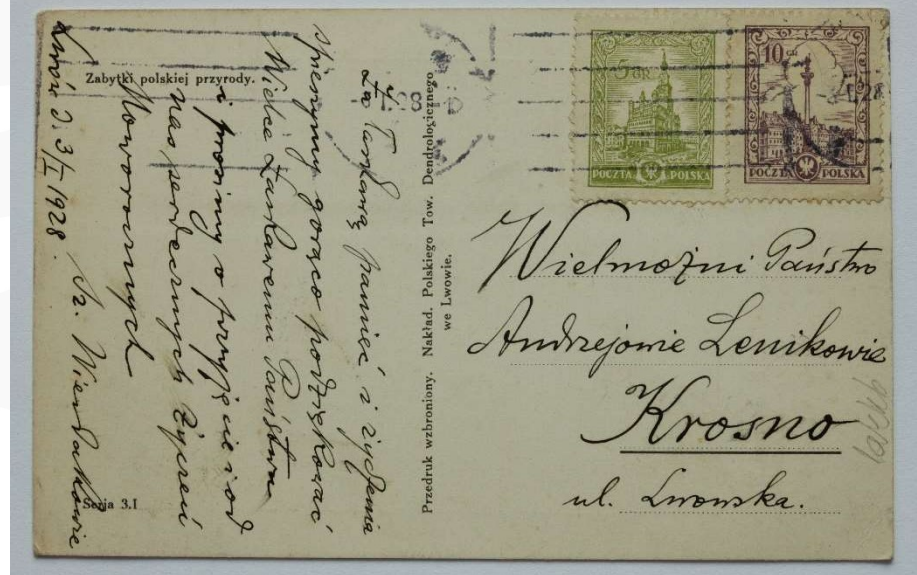 Zabytki polskiej przyrody.
Za łaskawą pamięć i życzenia
spieszymy gorąco podziękować
Wielce Łaskawemu Państwu
i prosimy o przyjęcie i od
nas serdecznych życzeń
Noworocznych
Lwów d. 3/I 1928.
Serja 3.I
Przedruk wzbroniony. Nakład. Polskiego Tow. Dendrologicznego
we Lwowie.
5 GR
POCZTA POLSKA
10 GR
POCZTA POLSKA
Wielmożni Państwo
Andrzejowie Lenikowie
Krosno
ul. Lwowska.